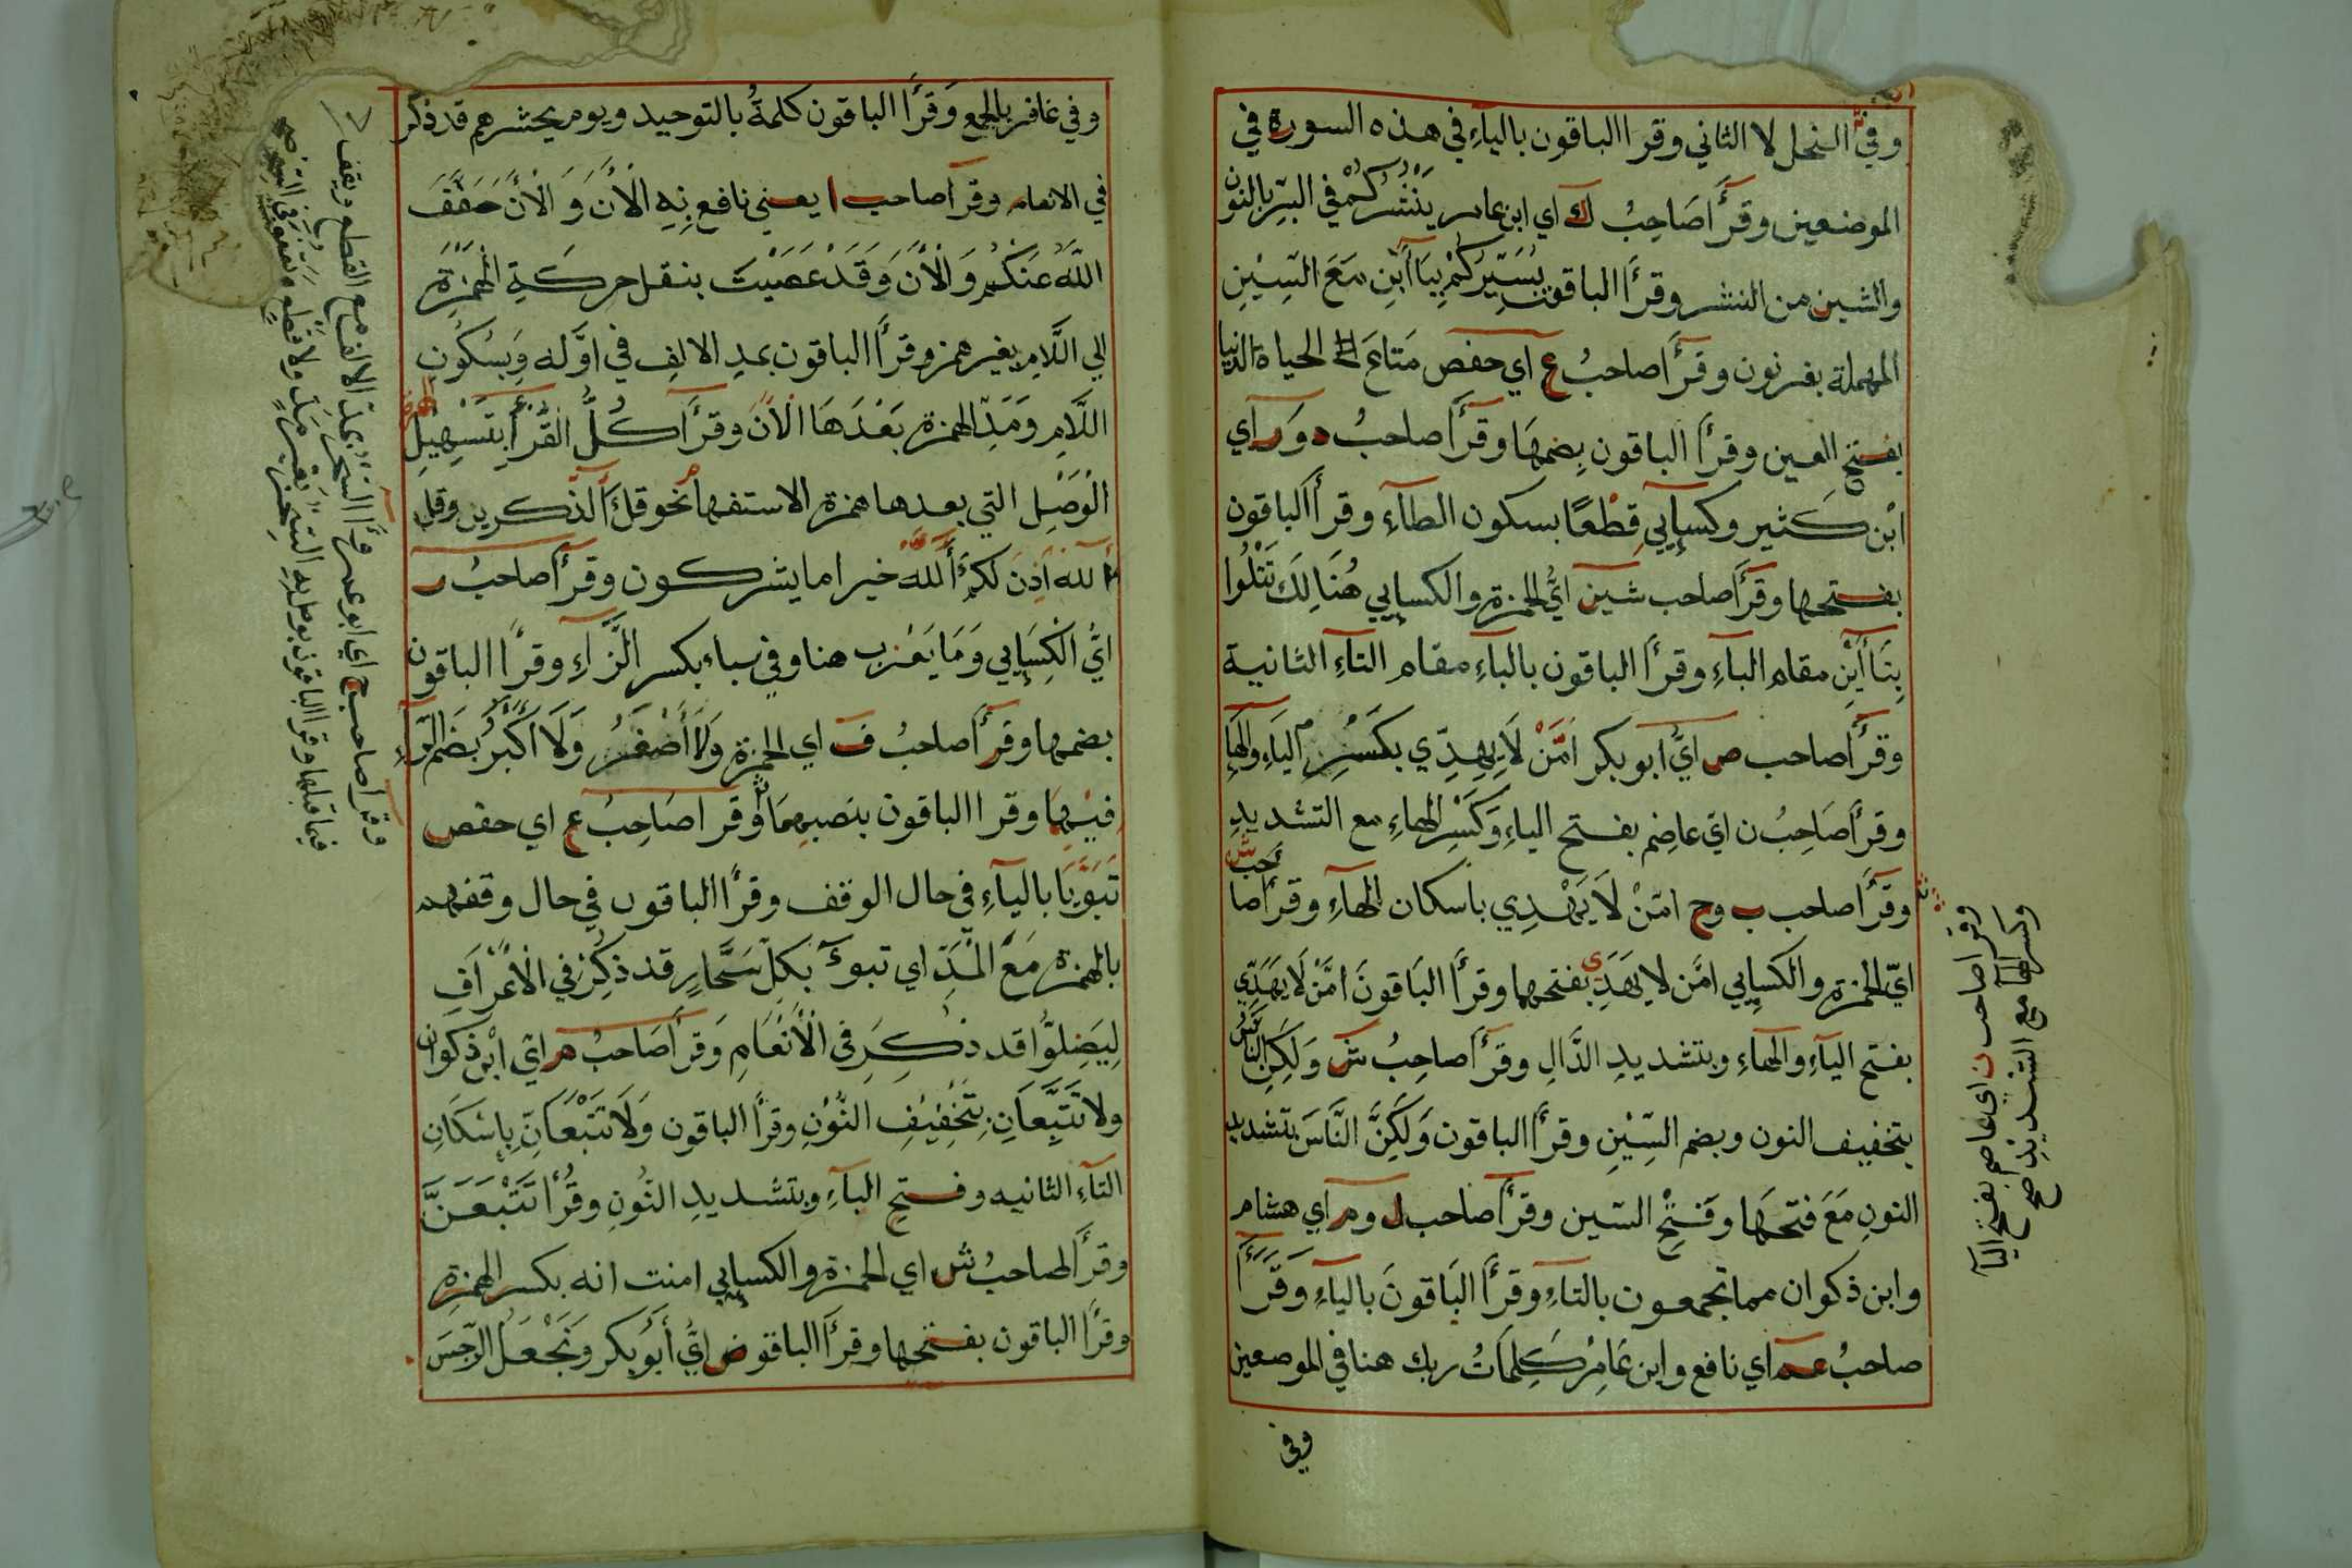 وفي النحل لا الثاني وقرا الباقون بالياءِ في هذه السورة في
الموضعين وقرأ صَاحِبُ ك اي ابن عامر يَنْشُرُكُمْ في البرّ بالنون
والشين من النشر وقرأ الباقون يُسَيِّركُمْ بِيَاأَيْنِ مَعَ السِّيْنِ
المهملة بغير نون وقرأ صاحبُ ع آي حفص مَتَاعَ الحياة الدنيا
بفتح العين وقرأ الباقون بِضمهَا وقرأ صاحبُ د وَر آي
ابْن كَثير وكسإيي قِطْعًا بسكون الطآءِ وقرأ الباقون
بفتحها وقرأ صاحب شين ايُّ الحمزة والكسإيي هُنَالِكَ تَتْلُوا
بِتَاأيْنِ مقام البآءِ وقرأ الباقون بالبآءِ مقام التاءِ الثانية
وقرأ صاحب ص ايُّ ابو بكر امَّنْ لاَ يِهِدِّي بكَسْرِ اليَاءِ والهَإ
وقرأ صَاحِبُ ن ايّ عاصِم بفتح الياءِ وَكَسْرِ الهاءِ مع التشديدِ
وقرأ صاحب ب وح امّنْ لَا يَهْدِي بأسكان الهآءِ وقرأ صاحب ش
ايّ الحمزة والكسإيي امَّن لا يَهَدِي بفتحهما وقرأ البَاقونَ امَّنْ لَا يَهَدِّي
بفتح اليآءِ والهاءِ وبتشديدِ الدَّالِ وقرأ صاحِبُ ش وَلَكِنِ النَّاسُ
بتخفيف النون وبضم السِّيْنِ وقرأ الباقون وَلَكِنَّ النَّاسَ بتشديد
النونِ مَعَ فتحَهَا وفَتْحِ السّين وقرأ صاحب ل وم آي هشام
وابن ذكوان مما تجمعون بالتاءِ وقرأ البَاقونَ بالياءِ وَقَرَأَ
صاحبُ عم اي نافع وابن عَامِرْ كَلِمَاتُ ربك هنا في الموصعين
وفي
وقرأ صاحب ن اي عاصم بفتح اليآ
وكسر الهآ مع التشديد صح
وفي غافر بالجمع وَقرَأ الباقون كلمةُ بالتوحيد ويوم يحشرهم قد ذكر
في الانعام وقرأ صاحب ا يعني نافع بِهِ الْأنَ وَ الْأنَ خَفَّفَ
اللَّهُ عَنكُم وَ الْأنَ وَقَدْ عَصَيْتَ بنقل حركةِ الْهَمْزَةِ
الي اللَّامِ بغير همز وقرأ الباقون بمدِ الالِف في اوَّله وَبسكُونِ
اللَّامِ وَمَدّ الهمزة بَعْدَهَا الْأنَ وقرَأ كُلُّ القُّرَّأ بِتَسْهِيْلِ
الْوَصْلِ التي بعدها همزة الاستفهام نحو قلْ آلذّكرين وقل
ءَ آلله أذِنَ لكمْ أَللهُ خير اما يشركون وقرأ صاحبُ ر
ايُّ الكِسَإيي وَمَا يَعْزِب هنا وفي سباء بكسر الزّاءِ وقرأ الباقون
بضمها وقرأ صاحبُ ف اي الحمزة وَلاَ أَصْغَرُ وَلَا أَكْبَرُ بضَم الرّاءِ
فيْهِمَا وقرا الباقون بنَصبِهمَا وقرأ صَاحِبُ ع اي حفص
تَبَوَّيَا بالياءِ في حال الوقف وقرأ الباقون في حال وقفهم
بالهمزة مَعَ الْمَدِّ اي تبوءَ بَكلّ سَحَّارٍ قد ذكرَ في الْاعْرافِ
لِيَضِلوُّا قد ذكِرَ في الْأنْعَامِ وَقرأ صَاحبُ م ايْ ابْن ذكوان
ولا تَتَّبِعَانِ بِتَخْفِيْفِ النُّوْنِ وقرأ الباقون وَلَا تَتَّبْعَانِّ بِاسْكَانِ
التآءِ الثانيه وفتح البآءِ وبتشديدِ النُّونِ وقُرُأ تَتْبَعَنَّ
وقرأ صاحبُ ش اي الحمزة والكسإيي امنت انه بكسر الهمزةِ
وقرأ الباقون بفتحها وقرأ الباقو ص ايُّ أبو بكر وَنَجْعَلُ الرّجسَ
وقرأ صاحب ح اي ابو عمرو
فيما قبلها وقرا الباقون